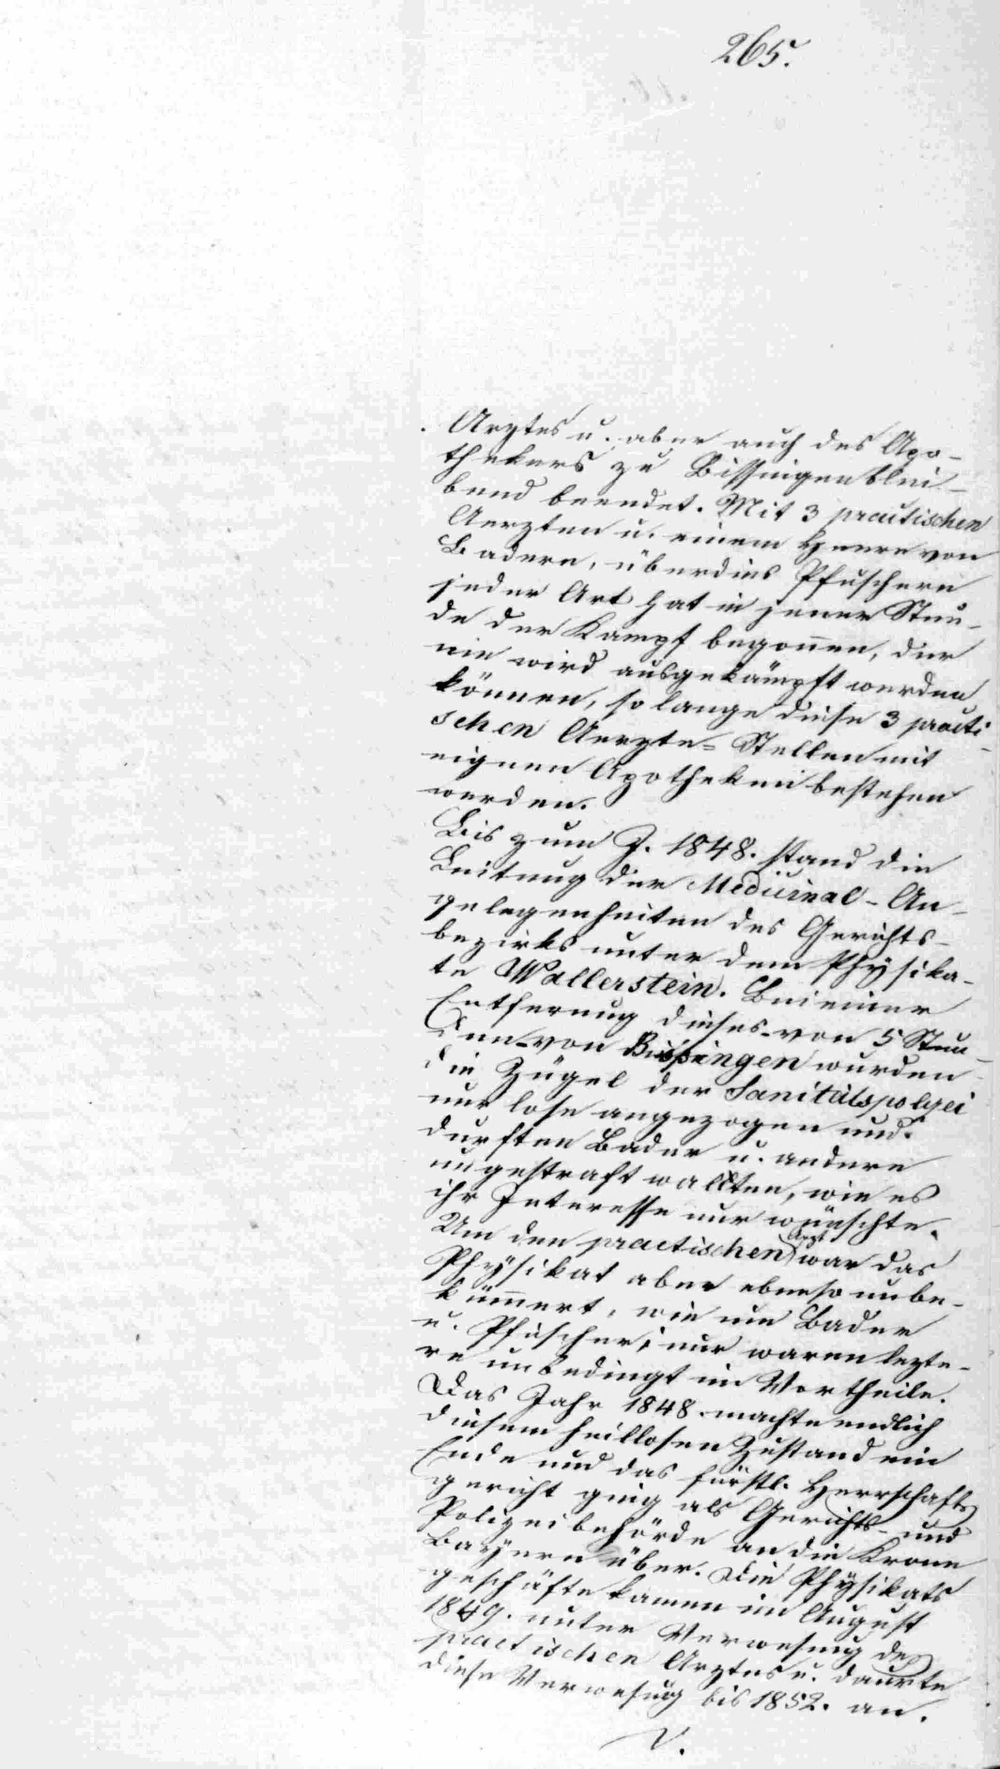 265.
Arztes u. aber auch des Apo-
thekers zu Bissingen blei-
bend beendet. Mit 3 practischen
Aerzten u. einem Heere von
Badern, überdies Pfuschern
jeder Art hat in jener Stun-
de der Kampf begonnen, der
nie wird ausgekämpft werden
können, so lange diese 3 practi-
schen Aerzte-Stellen mit
eignen Apotheken bestehen
werden.
Bis zum J. 1848. stand die
Leitung der Medicinal-An-
gelegenheiten des Gerichts-
bezirks unter dem Physika-
te Wallerstein. Bei einer
Entfernung dieses von 5 Stun-
den von Bissingen wurden
die Zügel der Sanitätspolizei
nur lose angezogen und
durften Bader u. andere
ungestraft wallten, wie es
ihr Interesse nur wünschte.
Um den practischen Arzt war das
Physikat aber ebenso unbe-
kümmert, wie um Bader
u. Pfuscher; nur waren lezte-
re unbedingt im Vortheile.
Das Jahr 1848. machte endlich
diesem heillosen Zustand ein
Ende und das fürstl. Herrschafts
gericht ging als Gerichts- und
Polizeibehörde an die Krone
Bayern über. Die Physikats
geschäfte kamen im August
1849. unter Verwesung des
practischen Arztes u. dauerte
diese Verwesung bis 1852. an.
V.